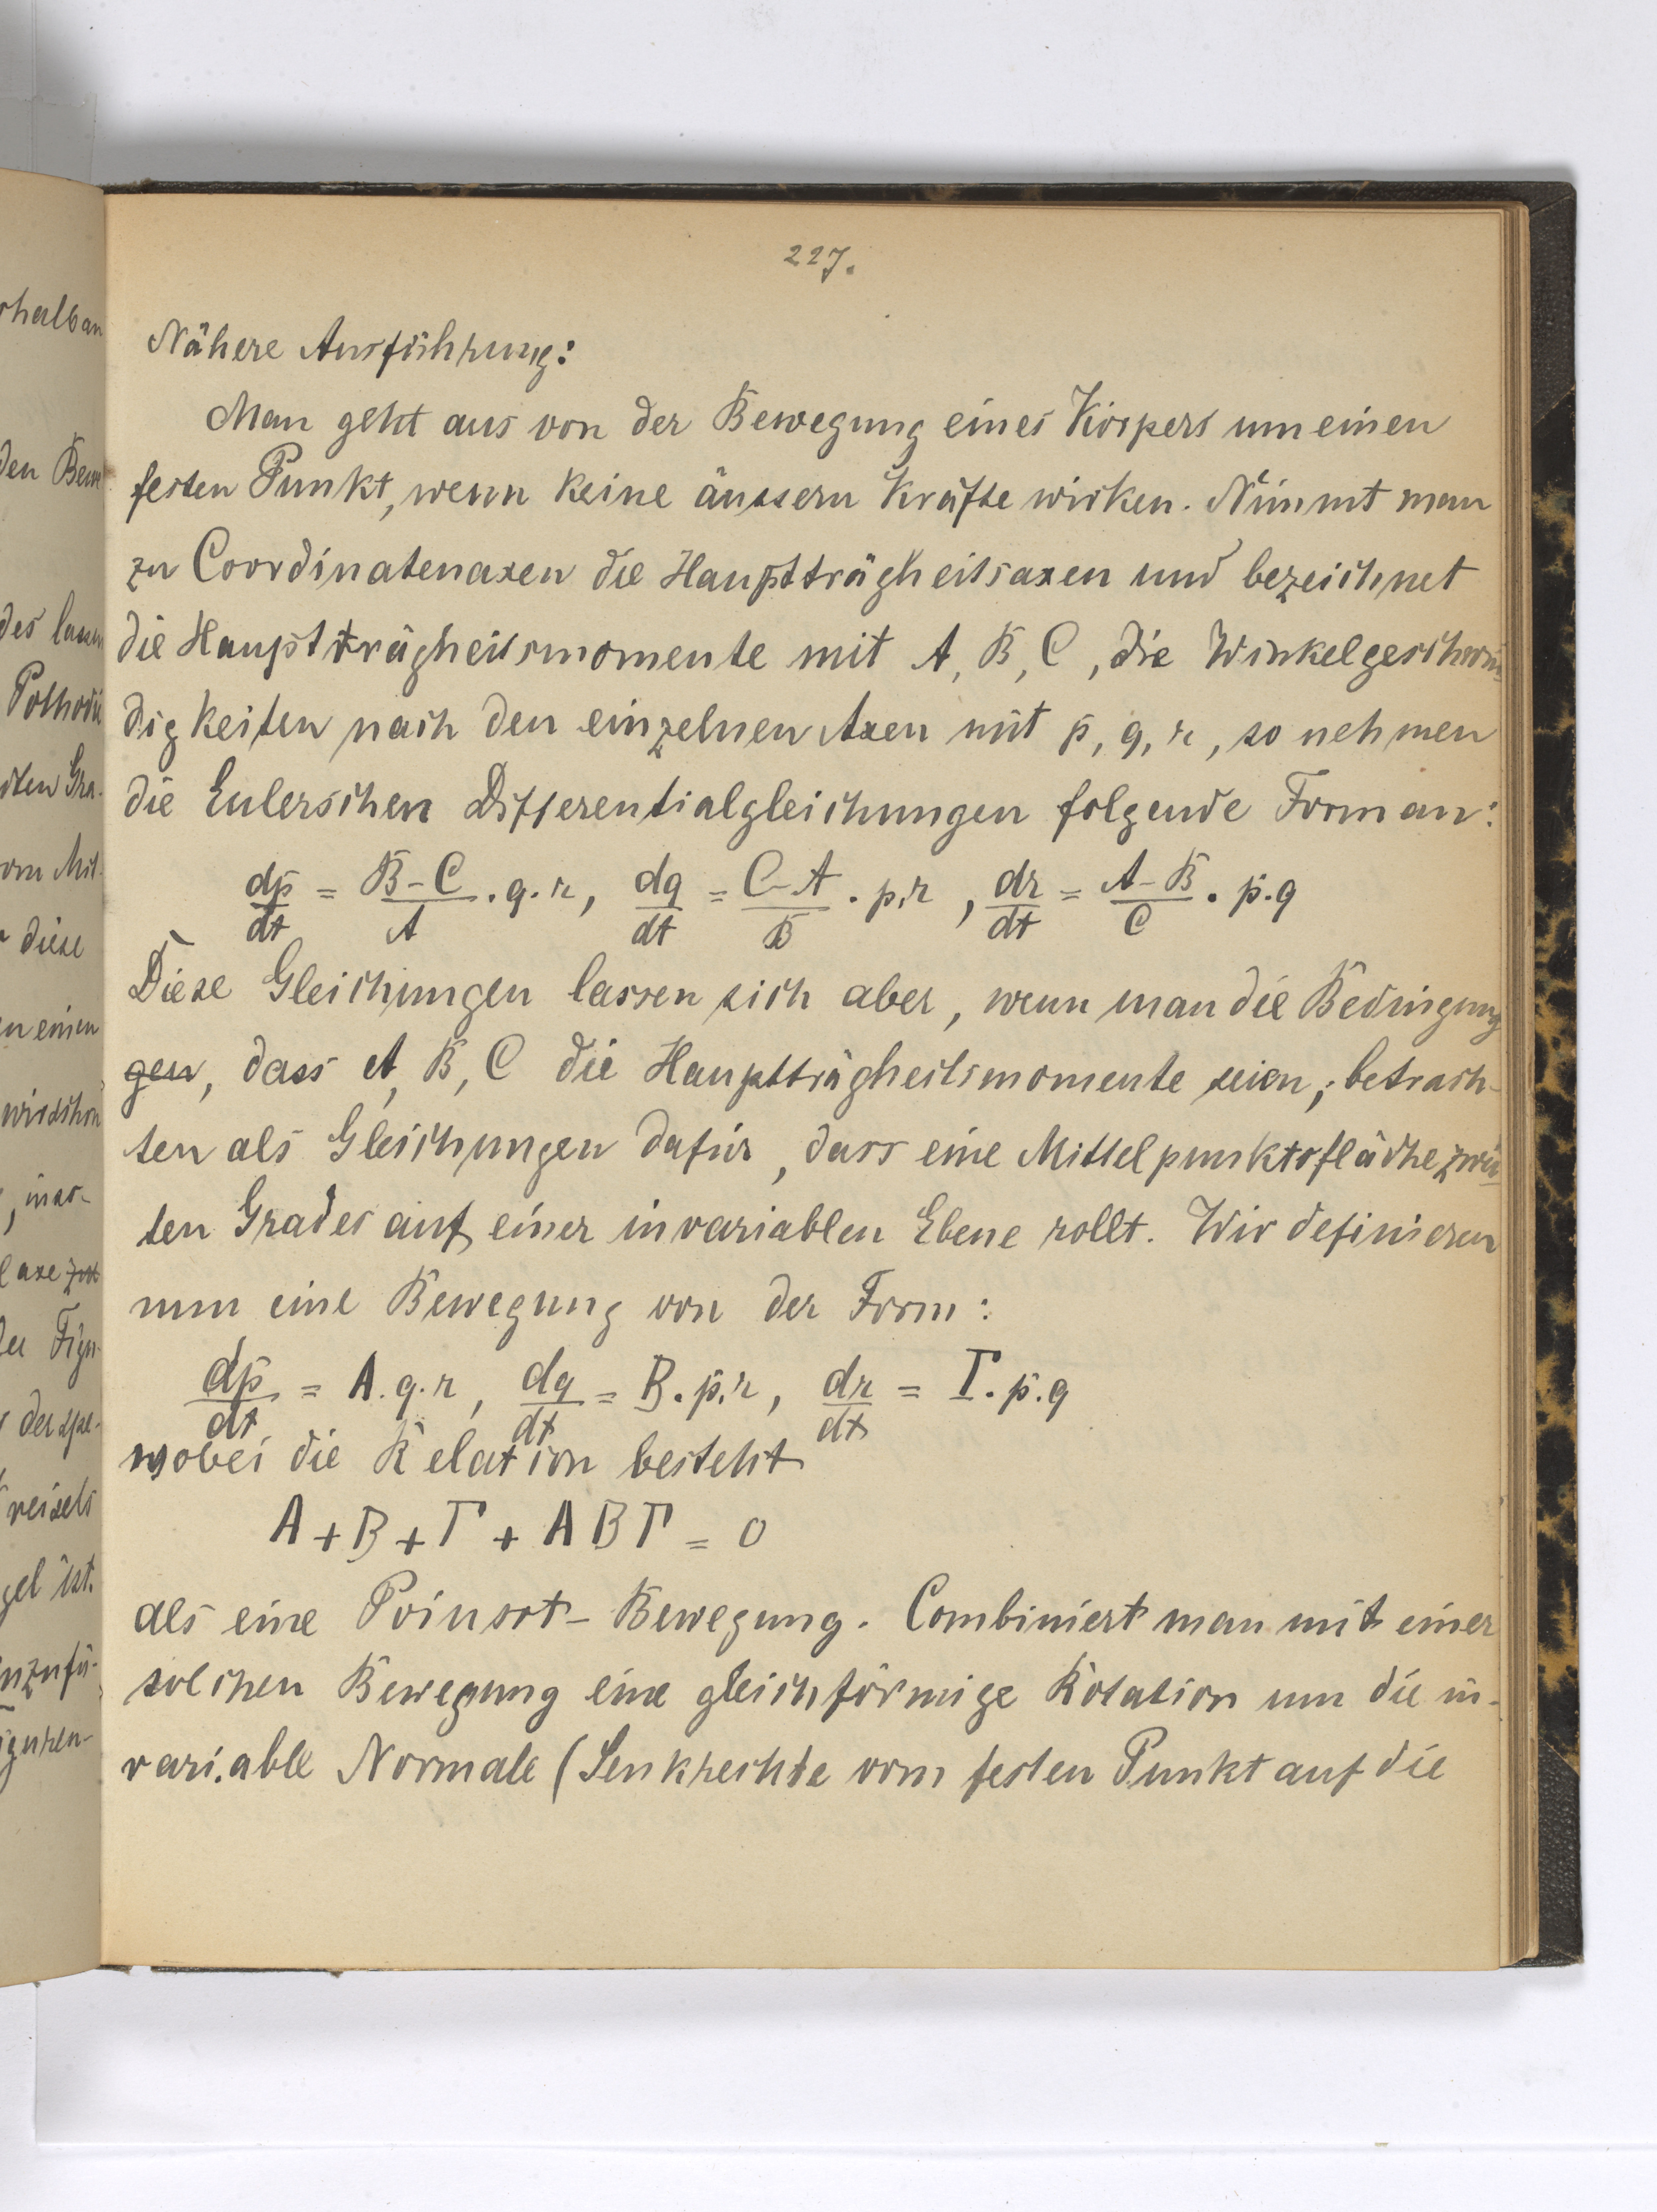 227.
Nähere Ausführung:
Man geht aus von der Bewegung eines Körpers um einen
festen Punkt, wenn keine äussern Kräfte wirken. Nimmt man
zu Coordinatenaxen die Hauptträgheitsaxen und bezeichnet
die Hauptträgheitsmomente mit A, B, C, die Winkelgeschwin
digkeiten nach den einzelnen Axen mit p, q, r, so nehmen
die Eulerschen Differentialgleichungen folgende Form an:
dp/dt = B-C/A . q. r, dq/dt = C-A/B . p. r, dr/dt = A-B/C . p. q
Diese Gleichungen lassen sich aber, wenn man die Bedingung
gen, dass A, B, C die Hauptträgheitsmomente seien, betrach-
ten als Gleichungen dafür, dass eine Mittelpunktsfläche zwei-
ten Grades auf einer invariablen Ebene rollt. Wir definieren
nun eine Bewegung von der Form:
dp/dt = Α. q. r, dq/dt = Β. p. r, dr/dt = Γ. p. q
wobei die Relation besteht
Α + Β + Γ + Α Β Γ = 0
als eine Poinsot-Bewegung. Combiniert man mit einer
solchen Bewegung eine gleichförmige Rotation um die in-
variable Normale (Senkrechte vom festen Punkt auf die
rhalb an
den Bewe
des lassen
Polhodie
dten Gra-
vom Mit-
diese
en einen
wir schon
laxe
der Figu-
der spe-
Kreisels
gel ist.
inzufü-
iguren-